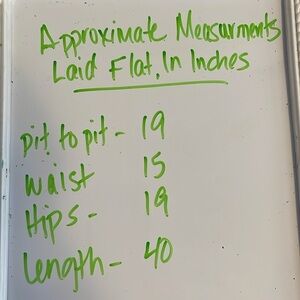 Approximate Measurments
Laid Flat, In Inches
pit to pit - 19
Waist 15
Hips - 19
Length - 40